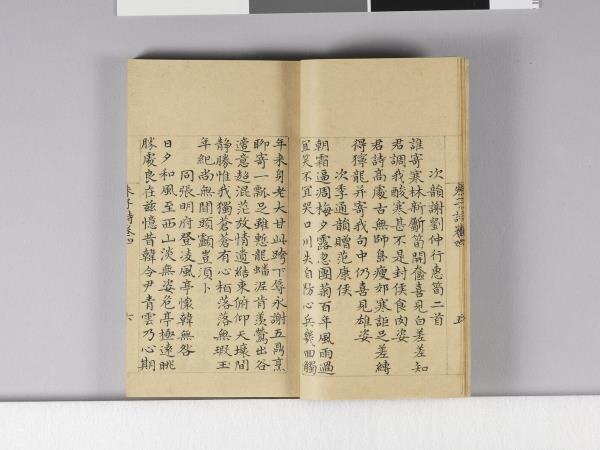 朱子詩卷四 五
次韻謝劉仲行惠筍二首
誰寄寒林新斸筍開奩喜見白差差知
君調我酸寒甚不是封侯食肉姿
君詩高處古無師島瘦郊寒詎足差縛
得獰龍并寄我句中仍喜見雄姿
次季通韻贈范康侯
朝霜逼凋梅夕露忽團菊百年風雨過
宜笑不宜哭口川失自防心兵幾回觸
年來身老大甘此跨下辱永謝五鼎烹
聊寄一瓢足雖慙龍蟠泥肯羡鶯出谷
遺意超混茫放情遺結束俯仰天壤間
静勝惟我獨蒼蒼有心栢落落無瑕玉
年紀尚無聞頭顱豈須卜
同張明府登凌風亭懷韓無咎
日夕和風至西山淡無姿危亭極遠眺
勝處良在兹憶昔韓令尹青雲乃心期
朱子詩卷四 六